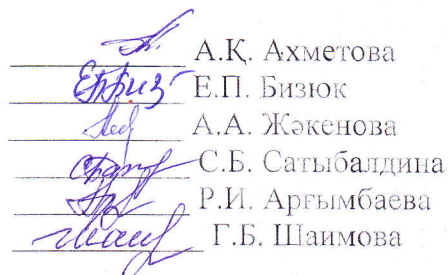 А.Қ. Ахметова
Е.П. Бизюк
А.А. Жәкенова
С.Б. Сатыбалдина
Р.И. Аргымбаева
Г.Б. Шаимова